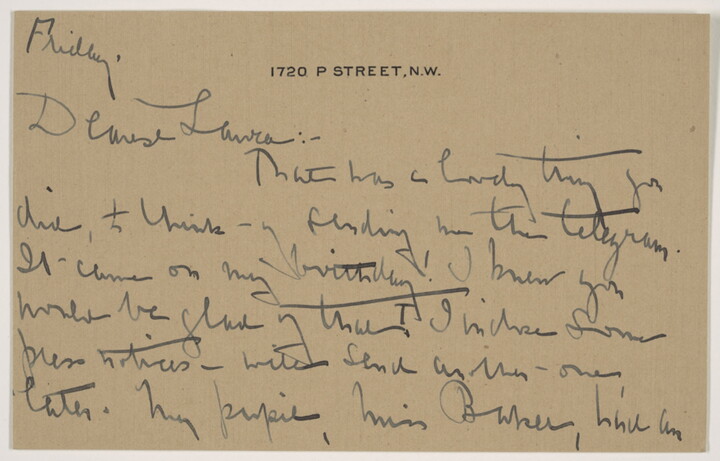 Friday.
1720 P STREET, N.W.
Dearest Laura:-
That was a lovely thing you
did, to think of sending me the telegram.
It came on my birthday! I knew you
would be glad of that! I inclose some
press notices - will send another one,
later. My pupil, Miss Baker, had an